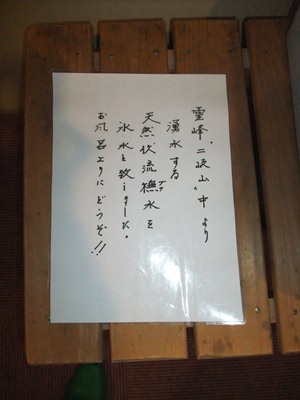 霊峰“二岐山”中より
湧水する
天然伏流橅水を
ブナ
氷水と致しました。
お風呂上りにどうぞ!!